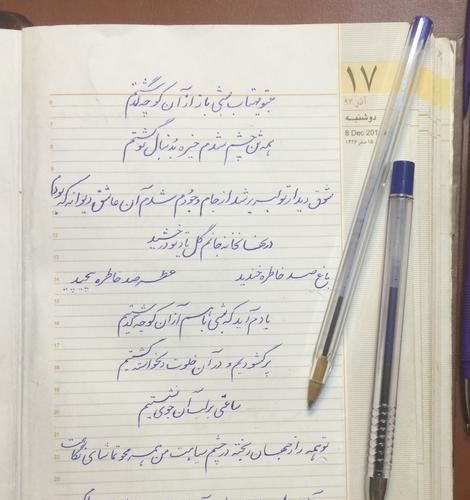 بی تو مهتاب شبی باز از آن کوچه گذشتم
همه تن چشم شدم خیره به دنبال تو گشتم
شوق دیدار تو لبریز شد از جام وجودم شدم آن عاشق دیوانه که بودم
در نهانخانه جانم گل یاد تو درخشید
باغ صد خاطره خندید عطر صد خاطره پیچید
یادم آید که شبی با هم از آن کوچه گذشتیم
پر گشودیم و در آن خلوت دلخواسته گشتیم
ساعتی بر لب آن جوی نشستیم
تو همه راز جهان ریخته در چشم سیاهت من همه محو تماشای نگاهت
۱۷
آذر ۹۳
دوشنبه
8 Dec 201
۱۵ صفر ۱۴۳۶